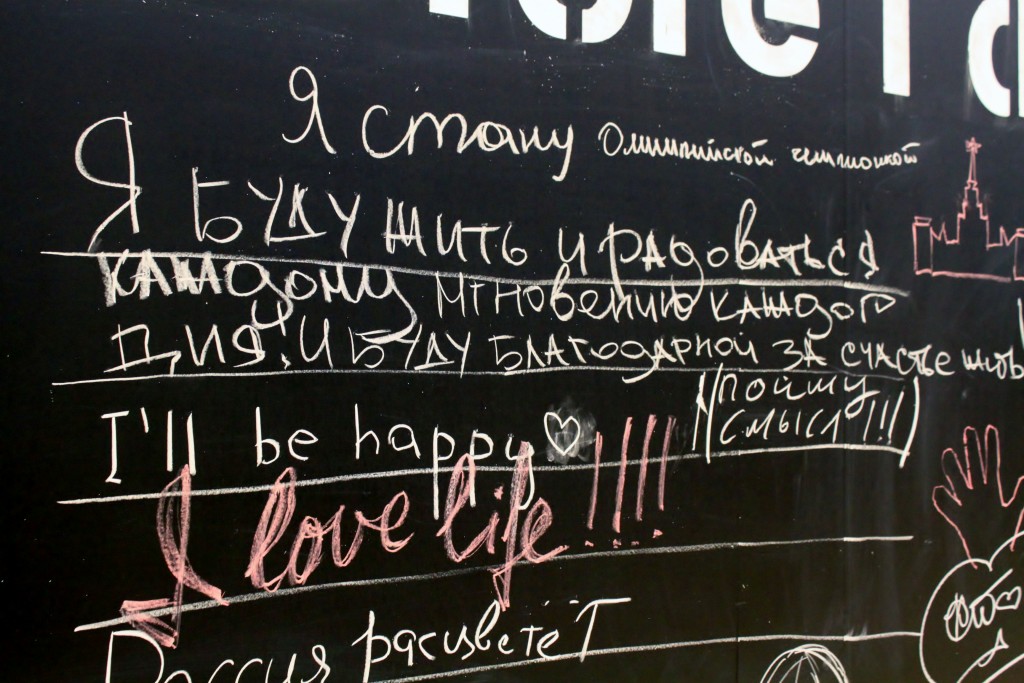 Я стану Олимпийской чемпионкой
Я БУДУ ЖИТЬ И РАДОВАТЬСЯ
КАЖДОМУ МГНОВЕНИЮ КАЖДОГО
ДНЯ! И БУДУ БЛАГОДАРНОЙ ЗА СЧАСТЬЕ ЖИТЬ
I'll be happy ♡
ПОЙМУ
СМЫСЛ!!!
I love life!!!!
Россия расцветёТ